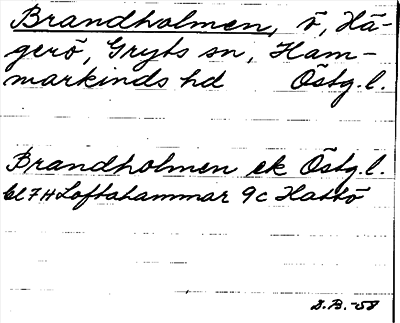 Brandholmen, ö, Hä-
gerö, Gryts sn, Ham-
markinds hd Östg. l.
Brandholmen ek Östg. l.
bl 7H Loftahammar 9c Hattö
B. -58